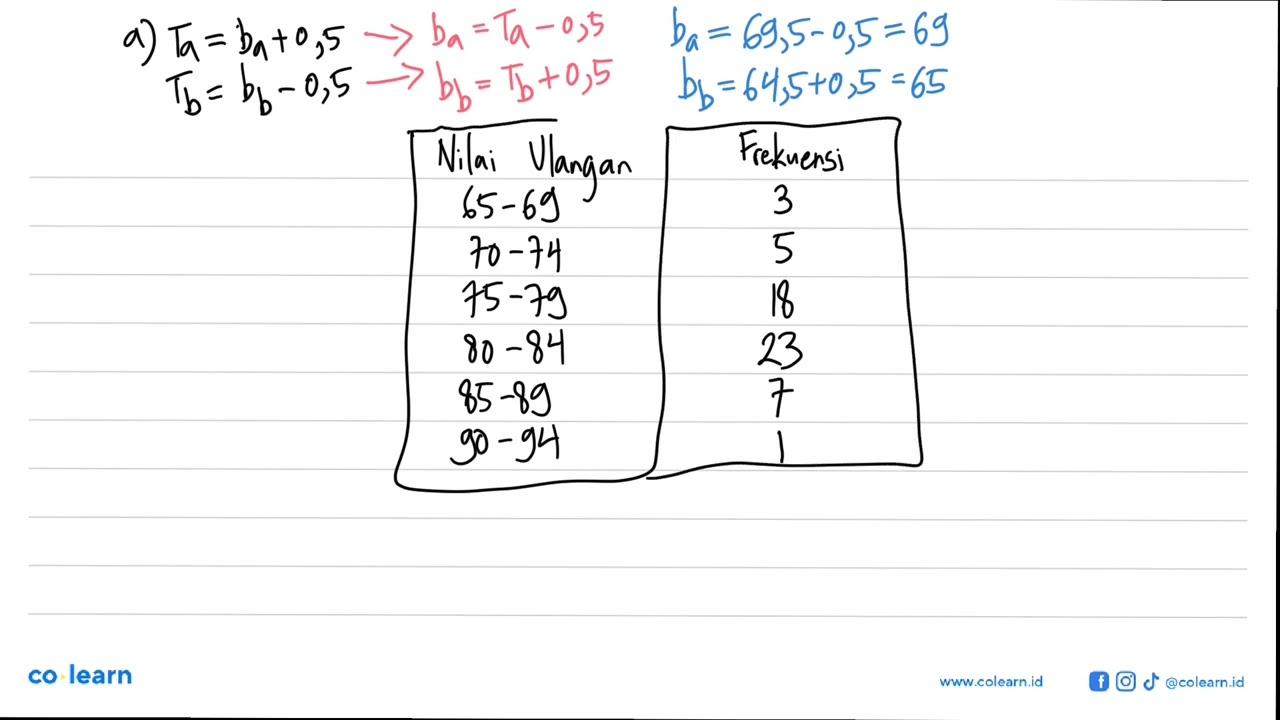 a) Ta = ba + 0,5 → ba = Ta - 0,5 ba = 69,5 - 0,5 = 69
Tb = bb - 0,5 → bb = Tb + 0,5 bb = 64,5 + 0,5 = 65
Nilai Ulangan Frekuensi
65 - 69 3
70 - 74 5
75 - 79 18
80 - 84 23
85 - 89 7
90 - 94 1
co learn www.colearn.id @colearn.id